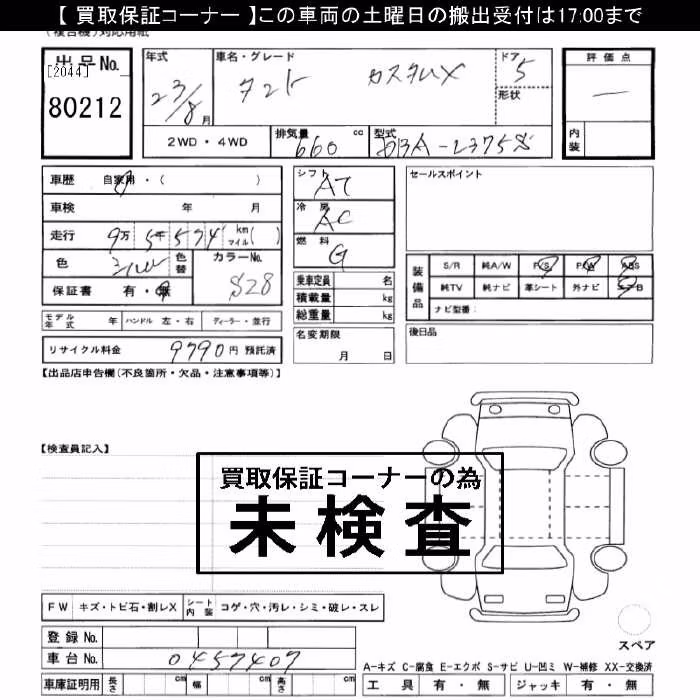 【 買取保証コーナー 】この車両の土曜日の搬出受付は17:00まで
(複合機)対応用紙
出品No.
[2044]
80212
年式
23/8月
車名・グレード
タント カスタムX
ドア
5
形状
評価点
—
内装
2WD・4WD
排気量 660 cc
型式 DBA-L375S
車歴 自家用・( )
車検 年 月
走行 9万5千574 km マイル( )
色 シルバー
色替
カラーNo.
S28
保証書 有・無
モデル年式 年
ハンドル 左・右
ディーラー・並行
リサイクル料金 9790円 預託済
シフト AT
冷房 AC
燃料 G
乗車定員 名
積載量 kg
総重量 kg
名変期限
月 日
セールスポイント
装備品
S/R 純A/W P/S P/W ABS
純TV 純ナビ 革シート 外ナビ エアB
ナビ型番:
後日品
【出品店申告欄(不良箇所・欠品・注意事項等)】
【検査員記入】
買取保証コーナーの為
未検査
FW キズ・トビ石・割レX
シート内装 コゲ・穴・汚レ・シミ・破レ・スレ
登録No.
車台No. 0457407
車庫証明用 長さ cm 幅 cm 高さ cm
スペア
A-キズ C-腐食 E-エクボ S-サビ U-凹ミ W-補修 XX-交換済
工具 有・無 ジャッキ 有・無